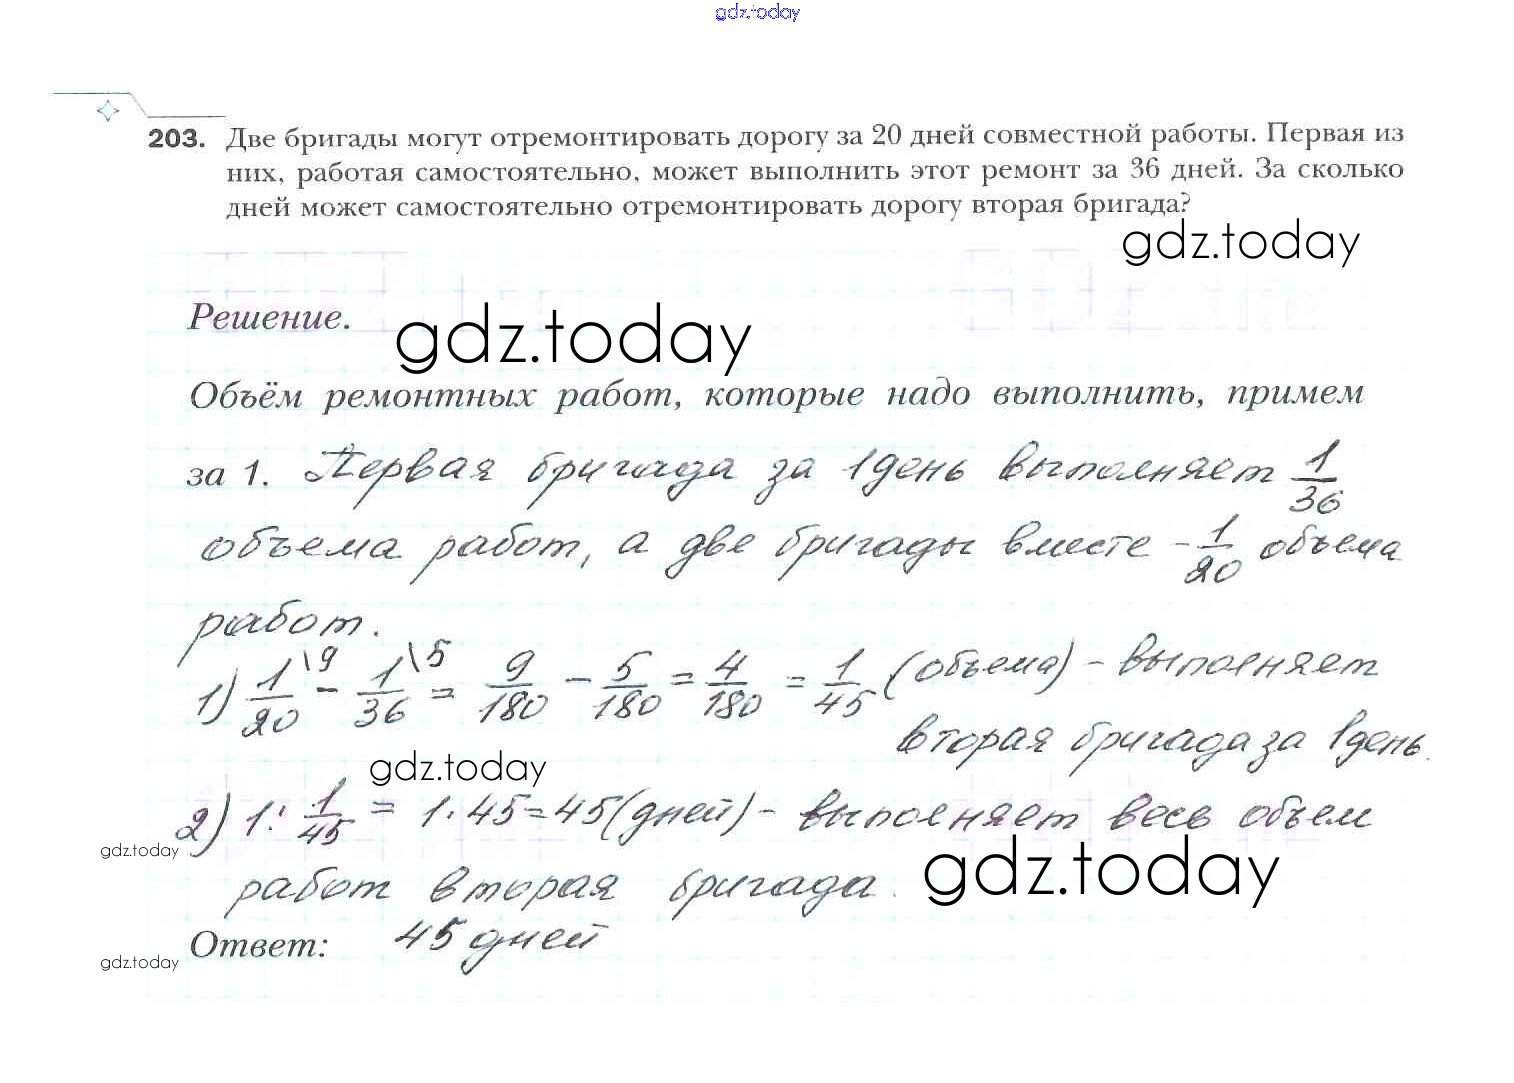 gdz.today
203. Две бригады могут отремонтировать дорогу за 20 дней совместной работы. Первая из
них, работая самостоятельно, может выполнить этот ремонт за 36 дней. За сколько
дней может самостоятельно отремонтировать дорогу вторая бригада?
gdz.today
Решение.
gdz.today
Объём ремонтных работ, которые надо выполнить, примем
за 1. Первая бригада за 1 день выполняет 1/36
объема работ, а две бригады вместе - 1/20 объема
работ.
1) 1/20 \9 - 1/36 \5 = 9/180 - 5/180 = 4/180 = 1/45 (объема) - выполняет
вторая бригада за 1 день.
gdz.today
2) 1 : 1/45 = 1 · 45 = 45 (дней) - выполняет весь объем
gdz.today
gdz.today
работ вторая бригада.
Ответ: 45 дней
gdz.today